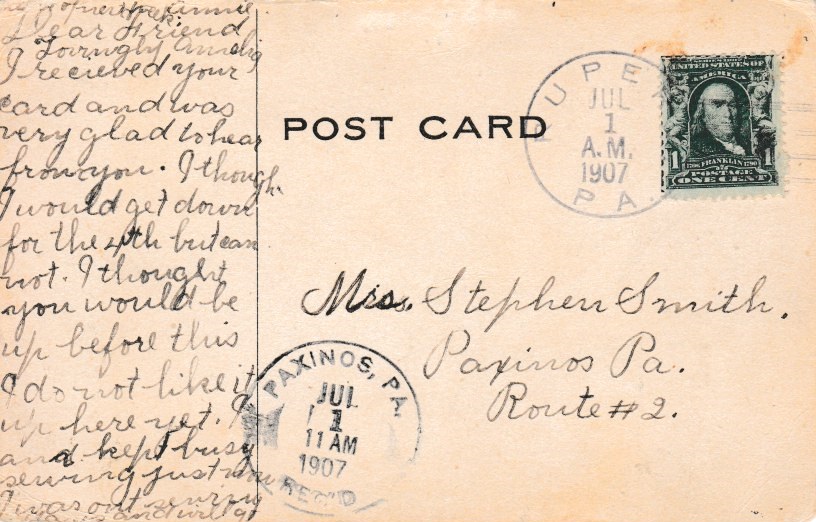 Dear Friend
Lovingly
I recieved your
card and was
very glad to hear
from you. I though
I would get down
for the 4th but can
not. I thought
you would be
up before this
I do not like it
up here yet. I
and kept busy
sewing just now
I was out sewing
POST CARD
RUPERT
JUL
1
A.M.
1907
PA.
SERIES 1902
UNITED STATES OF
AMERICA
1 1706 FRANKLIN 1790 1
POSTAGE
ONE CENT
Mrs. Stephen Smith.
Paxinos Pa.
Route #2.
PAXINOS, PA.
JUL
1
11 AM
1907
REC'D